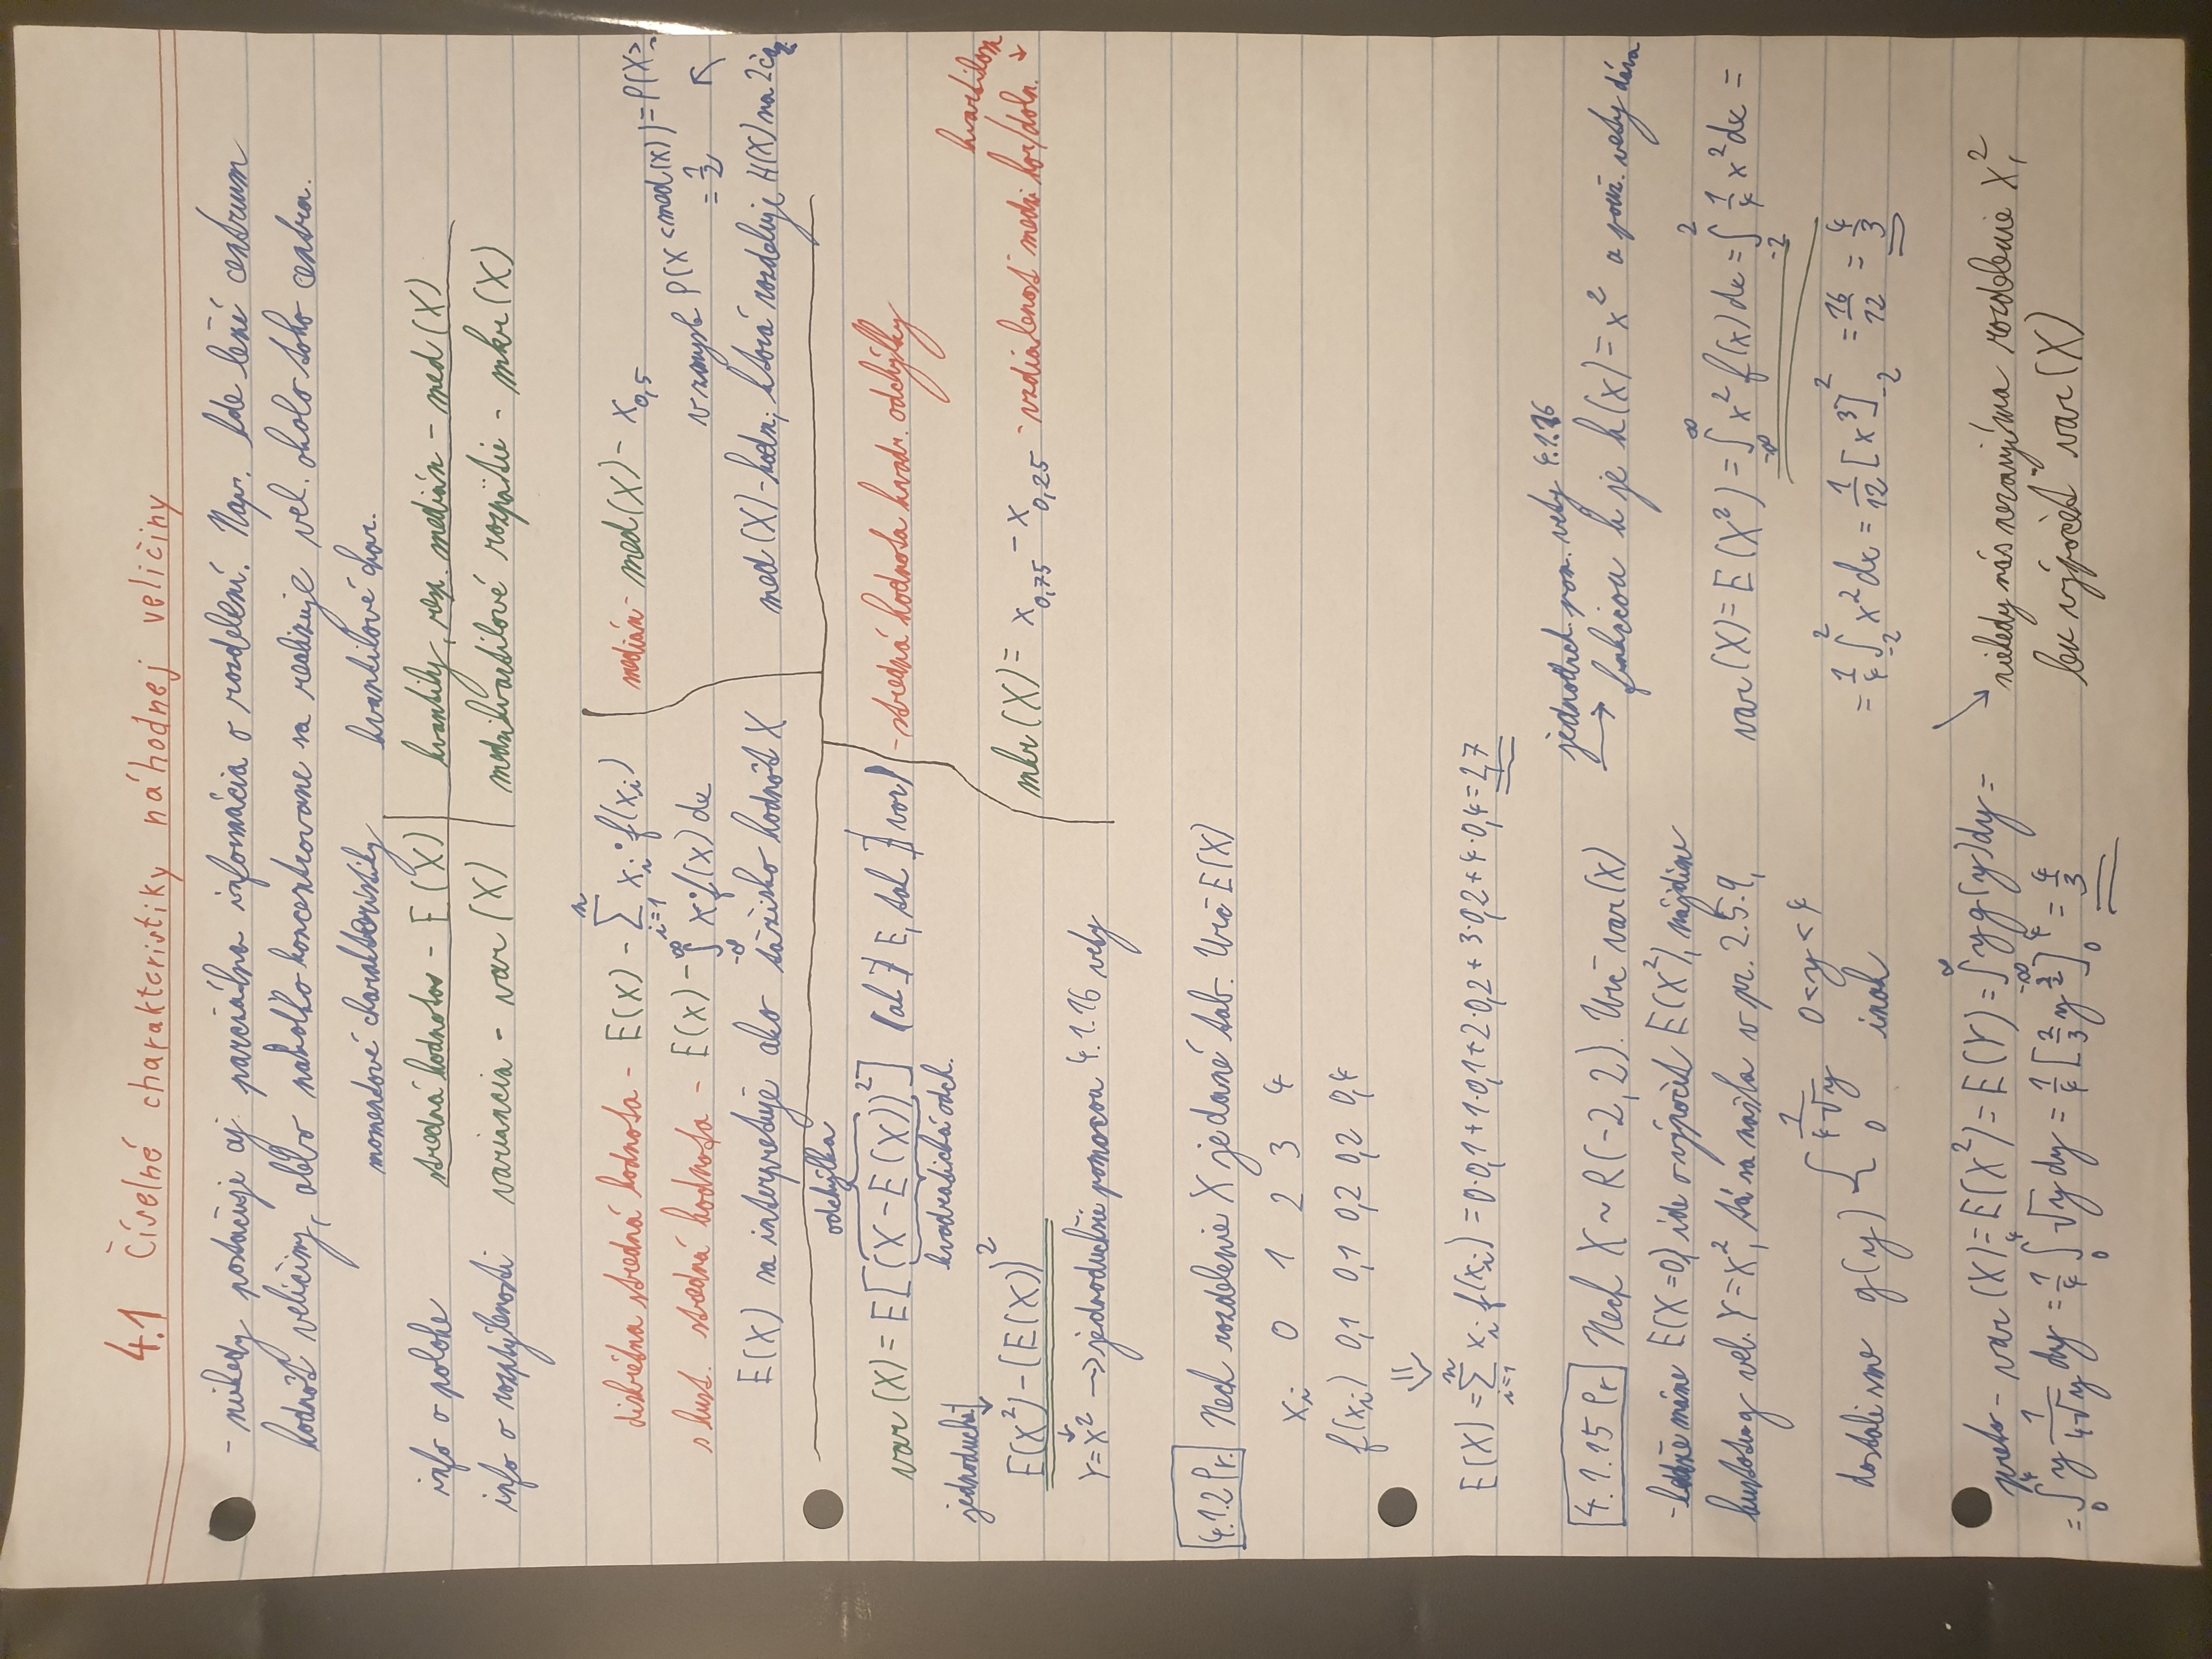 4.1 Číselné charakteristiky náhodnej veličiny
- niekedy postačuje aj parciálna informácia o rozdelení. Napr. kde leží centrum
hodnôt veličiny, alebo nakoľko koncentrovane sa realizuje vel. okolo toho centra.
momentové charakteristiky kvantilové char.
info o polohe stredná hodnota - E(X) kvantily, resp. medián - med(X)
info o rozptýlenosti variancia - var(X) medzikvartilové rozpätie - mkr(X)
diskrétna stredná hodnota - E(X) - ∑_{i=1}^{n} x_i · f(x_i)
s hust. stredná hodnota - E(X) - ∫_{-∞}^{∞} x·f(x) dx
E(X) sa interpretuje ako ťažisko hodnôt X
medián - med(X) - x_{0,5}
v zmysle P(X < med(X)) = P(X ≥
= 1/2 ↖
med(X) - hodn; ktorá rozdeľuje H(X) na 2
odchýlka
var(X) = E[(X - E(X))²] (ak ∄ E, tak ∄ var)
kvadratická odch.
jednoduch. ↓
E(X²) - (E(X))²
↓
Y = X² → jednoduchšie pomocou 4.1.16 vety
- stredná hodnota kvadr. odchýlky
kvartilom
mkr(X) = x_{0,75} - x_{0,25} - vzdialenosť medzi hor/doln. ↓
4.1.2 Pr. Nech rozdelenie X je dané tab. Urč E(X)
x_i 0 1 2 3 4
f(x_i) 0,1 0,1 0,2 0,2 0,4
⇓
E(X) = ∑_{i=1}^{n} x_i f(x_i) = 0·0,1+1·0,1+2·0,2+3·0,2+4·0,4 = 2,7
4.1.15 Pr Nech X ~ R(-2,2). Urč var(X)
- keďže máme E(X=0) ide o výpočet E(X²), nájdime
hustotu g vel. Y = X², tá sa našla v pr. 2.5.9,
dostali sme g(y) { 1/(4√y) 0<y<4
0 inak
preto - var(X) = E(X²) = E(Y) = ∫_{-∞}^{∞} y g(y) dy =
= ∫_0^4 y 1/(4√y) dy = 1/4 ∫_0^4 √y dy = 1/4 [2/3 y^{3/2}]_0^4 = 4/3
jednoduch. pom. vety 4.1.16
→ funkciou h je h(x) = x² a použ. vety dáva
var(X) = E(X²) = ∫_{-∞}^{∞} x² f(x) dx = ∫_{-2}^{2} 1/4 x² dx =
= 1/4 ∫_{-2}^{2} x² dx = 1/12 [x³]_{-2}^{2} = 16/12 = 4/3
↘ niekedy nás nezaujíma rozdelenie X²,
len výpočet var(X)